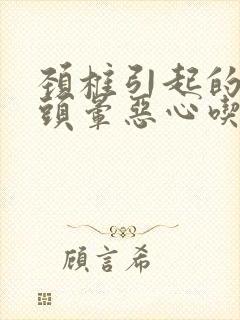 頚椎引起的
頭暈惡心喫
顧言希